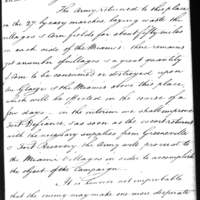 The Army returned to this place
on the 27th by easy marches, laying waste the
villages & corn fields for about fifty miles
on each side of the Miamis. there remains
yet a number of villages & a great quantity
of corn to be consumed or destroyed upon
Au Glaize & the Miamis above this place,
which will be effected in the course of a
few days. in the interim we shall improve
Fort Defiance, & as soon as the escort returns
with the necessary supplies from Greeneville
& Fort Recovery, the army will proceed to
the Miami villages in order to accomplish
the object of the Campaign.
It is however not improbable
that the enemy may make one more desperate